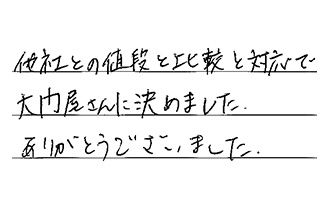 他社との値段と比較と対応で
大門屋さんに決めました.
ありがとうございました.